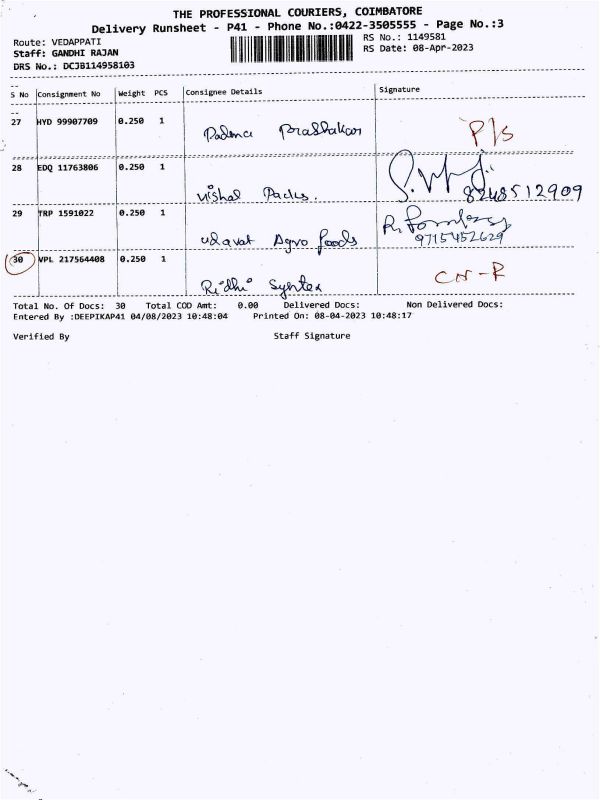 THE PROFESSIONAL COURIERS, COIMBATORE
Delivery Runsheet - P41 - Phone No.:0422-3505555 - Page No.:3
Route: VEDAPPATI RS No.: 1149581
Staff: GANDHI RAJAN RS Date: 08-Apr-2023
DRS No.: DCJB114958103
S No Consignment No Weight PCS Consignee Details Signature
27 HYD 99907709 0.250 1
Prabhakar P/S
28 EDQ 11763806 0.250 1
Vishal Packs. 8248512909
29 TRP 1591022 0.250 1
Udavat Agro foods 9715452629
30 VPL 217564408 0.250 1
Ridhi Syntex CN-R
Total No. Of Docs: 30 Total COD Amt: 0.00 Delivered Docs: Non Delivered Docs:
Entered By :DEEPIKAP41 04/08/2023 10:48:04 Printed On: 08-04-2023 10:48:17
Verified By Staff Signature